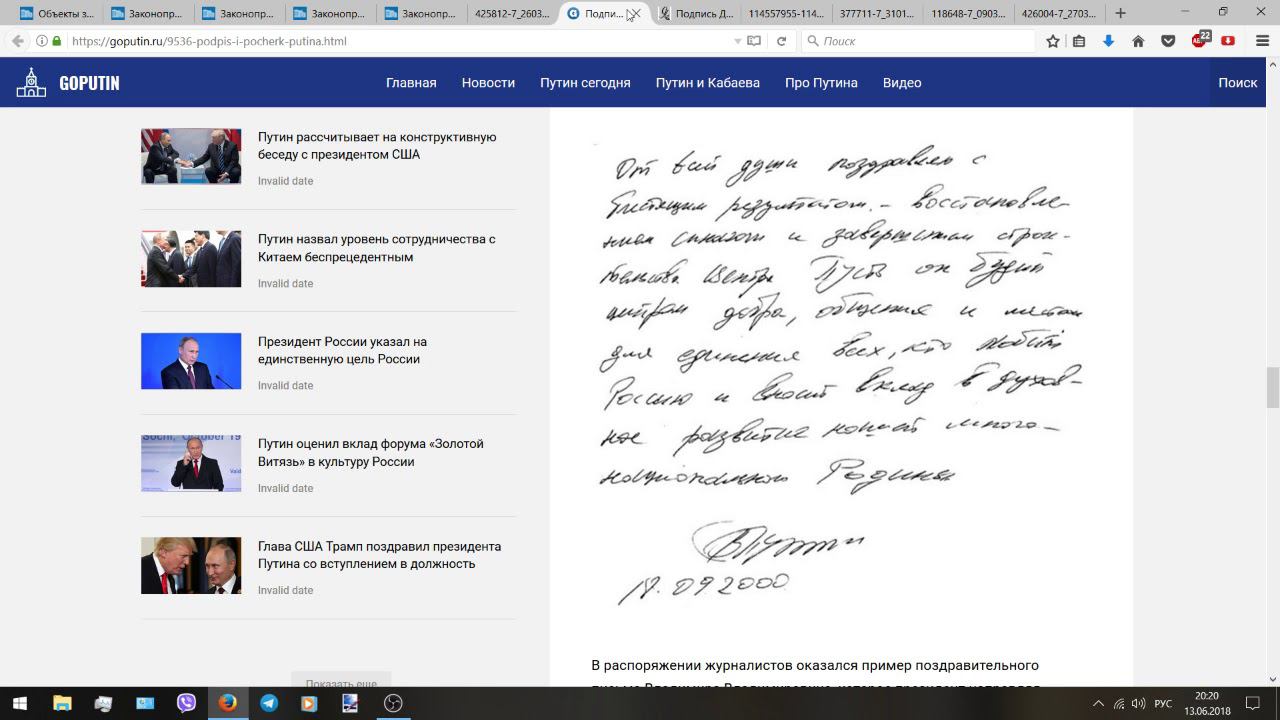 Объекты з
Законопр
Законопр
Законопр
Законопр
425812-7_2603
Подпи
Подпись Д
114557955-114
377711-7_3101
118648-7_0903
426004-7_2703
https://goputin.ru/9536-podpis-i-pocherk-putina.html
Поиск
22
GOPUTIN
Главная Новости Путин сегодня Путин и Кабаева Про Путина Видео
Поиск
Путин рассчитывает на конструктивную
беседу с президентом США
Invalid date
Путин назвал уровень сотрудничества с
Китаем беспрецедентным
Invalid date
Президент России указал на
единственную цель России
Invalid date
Sochi, October 19
Путин оценил вклад форума «Золотой
Витязь» в культуру России
Invalid date
Глава США Трамп поздравил президента
Путина со вступлением в должность
Invalid date
Показать еще
От всей души поздравляю с
блестящим результатом. – восстановле-
нием синагоги и завершением строи-
тельства Центра Пусть он будет
центром добра, общения и местом
для единения всех, кто любит
Россию и вносит вклад в духов-
ное развитие нашей много-
национальной Родины
ВПутин
18.09.2000
В распоряжении журналистов оказался пример поздравительного
РУС
20:20
13.06.2018